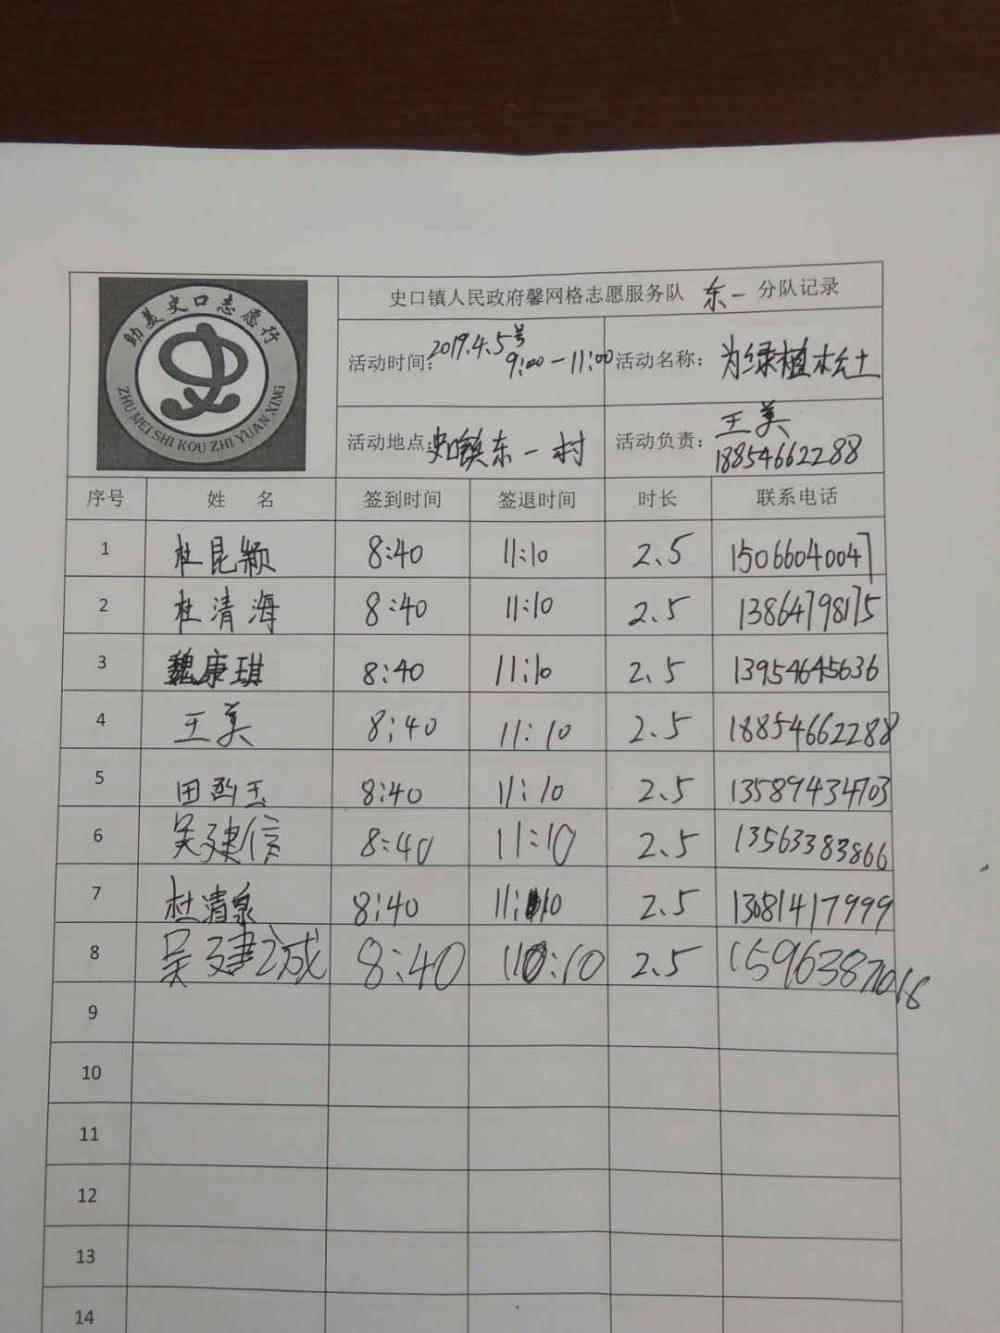 助美史口志愿行
ZHU MEI SHI KOU ZHI YUAN XING
史口镇人民政府馨网格志愿服务队 东一 分队记录
活动时间: 2019.4.5号 9:00-11:00 活动名称: 为绿植松土
活动地点: 史口镇东一村 活动负责: 王美 18854662288
序号 姓 名 签到时间 签退时间 时长 联系电话
1 杜昆颖 8:40 11:10 2.5 15066040047
2 杜清海 8:40 11:10 2.5 13864798175
3 魏康琪 8:40 11:10 2.5 13954645636
4 王美 8:40 11:10 2.5 18854662288
5 田玉 8:40 11:10 2.5 13589434703
6 吴建信 8:40 11:10 2.5 13563383866
7 杜清泉 8:40 11:10 2.5 13081417999
8 吴建诚 8:40 11:10 2.5
9
10
11
12
13
14